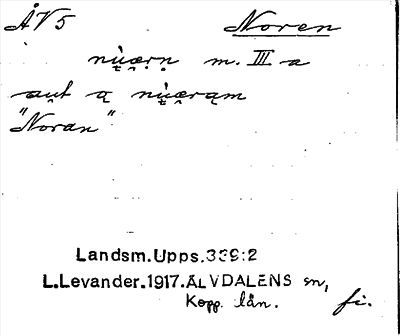 ÅV5 Noren
nù̯æ̯rṇ m. III a
au̯t ą nù̯æ̯rąm
"Noran"
Landsm.Upps.339:2
L.Levander.1917.ÄLVDALENS sn,
Kopp. län. fi.